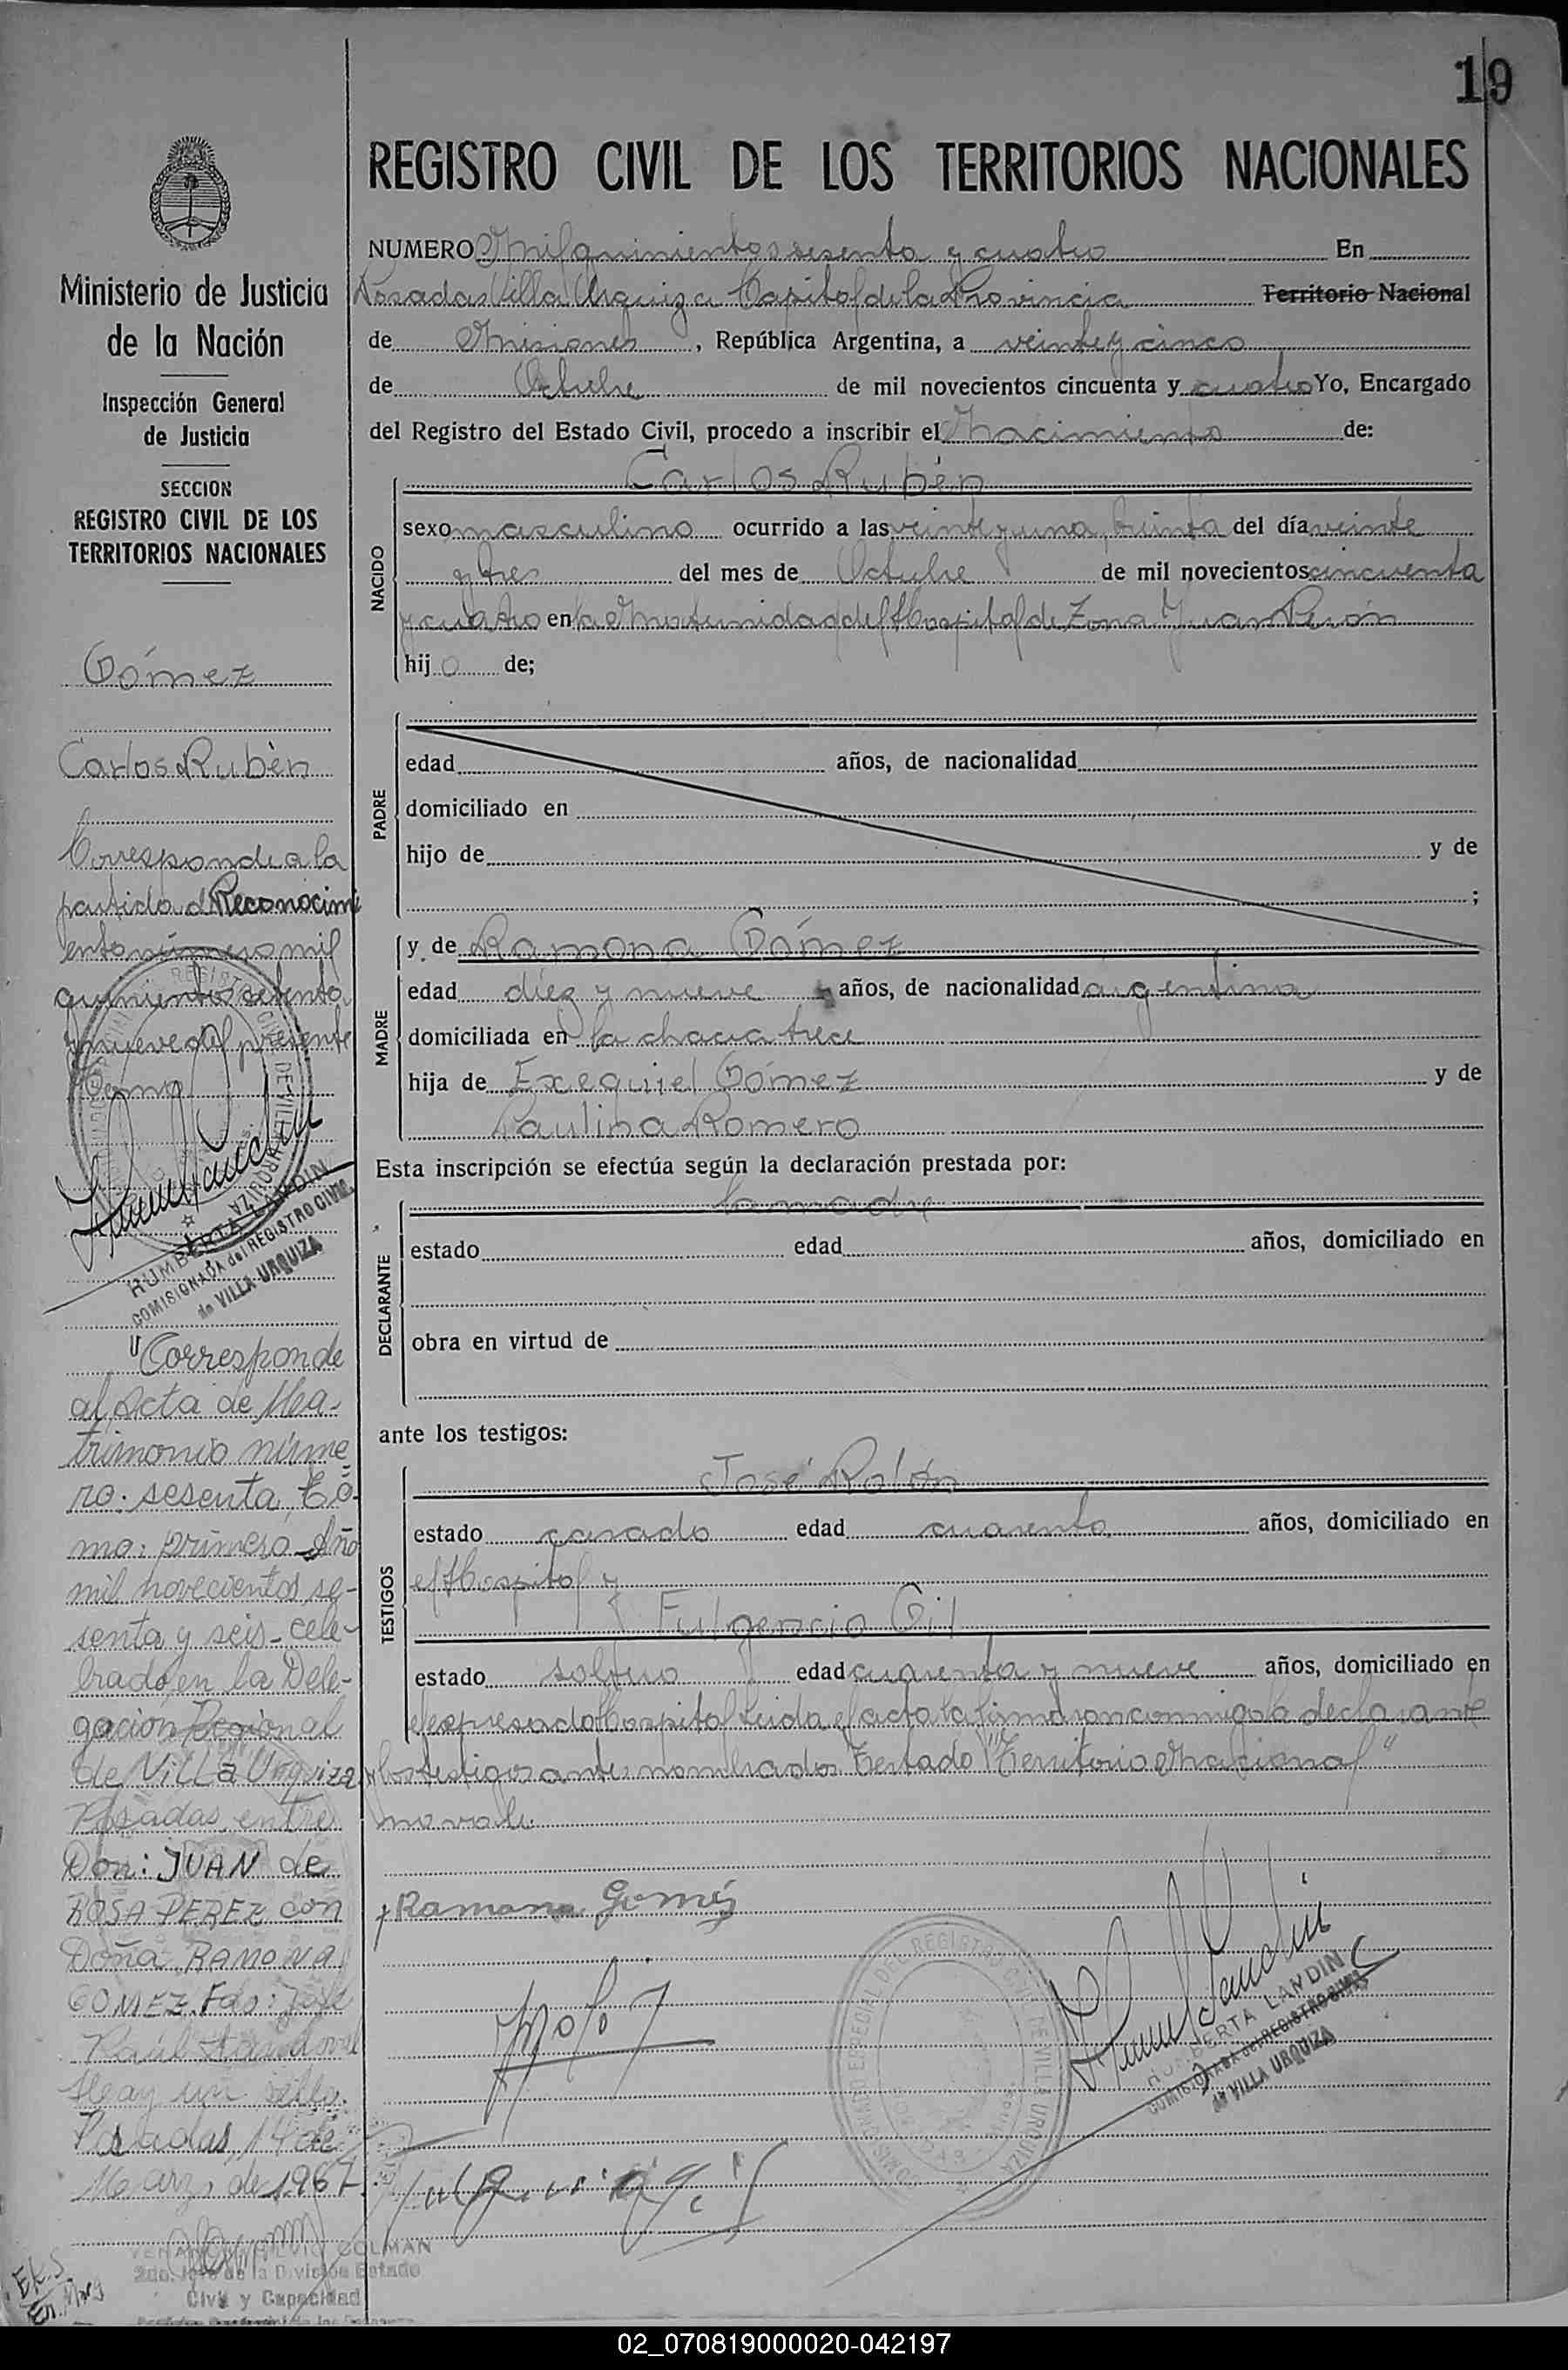 19
REGISTRO CIVIL DE LOS TERRITORIOS NACIONALES
Ministerio de Justicia
de la Nación
Inspección General
de Justicia
SECCION
REGISTRO CIVIL DE LOS
TERRITORIOS NACIONALES
Gómez
Carlos Rubén
Corresponde a la
partida d Reconocimi
ento número mil
quinientos setenta
y nueve del presente
tomo
HUMBERTA LANDIN
COMISIONADA del REGISTRO CIVIL
de VILLA URQUIZA
"Corresponde
al Acta de Ma-
trimonio núme
ro: sesenta, To
mo: primero Año
mil novecientos se-
senta y seis- cele-
brado en la Dele-
gación Regional
de Villa Urquiza
Posadas, entre
Don: JUAN de
ROSA PEREZ con
Doña RAMONA
GOMEZ. Fdo: José
Raúl Sandoval
Hay un sello.
Posadas, 14 de
Marzo de 1967
COLMAN
2do. Jefe de la División Estado
Civil y Capacidad
NUMERO Mil quinientos sesenta y cuatro En
Posadas Villa Urquiza Capital de la Provincia Territorio Nacional
de Misiones, República Argentina, a veinte y cinco
de Octubre de mil novecientos cincuenta y cuatro Yo, Encargado
del Registro del Estado Civil, procedo a inscribir el Nacimiento de:
NACIDO
Carlos Rubén
sexo masculino ocurrido a las veinte y una, treinta del día veinte
y tres del mes de Octubre de mil novecientos cincuenta
y cuatro en la Maternidad del Hospital de Zona Juan Perón
hijo de;
PADRE
edad años, de nacionalidad
domiciliado en
hijo de y de
;
MADRE
y de Ramona Gómez
edad diez y nueve años, de nacionalidad argentina
domiciliada en la chacra trece
hija de Exequiel Gómez y de
Paulina Romero
Esta inscripción se efectúa según la declaración prestada por:
DECLARANTE
la madre
estado edad años, domiciliado en
obra en virtud de
ante los testigos:
TESTIGOS
José Rolón
estado casado edad cuarenta años, domiciliado en
el Hospital y
Fulgencio Gil
estado soltero edad cuarenta y nueve años, domiciliado en
el expresado Hospital Leida el acta la firmaron conmigo la declarante
y los testigos antes nombrados Testado "Territorio Nacional"
no vale.
Ramona Gomés
REGISTRO CIVIL DE VILLA URQUIZA
HUMBERTA LANDIN
COMISIONADA del REGISTRO CIVIL
de VILLA URQUIZA
02_070819000020-042197